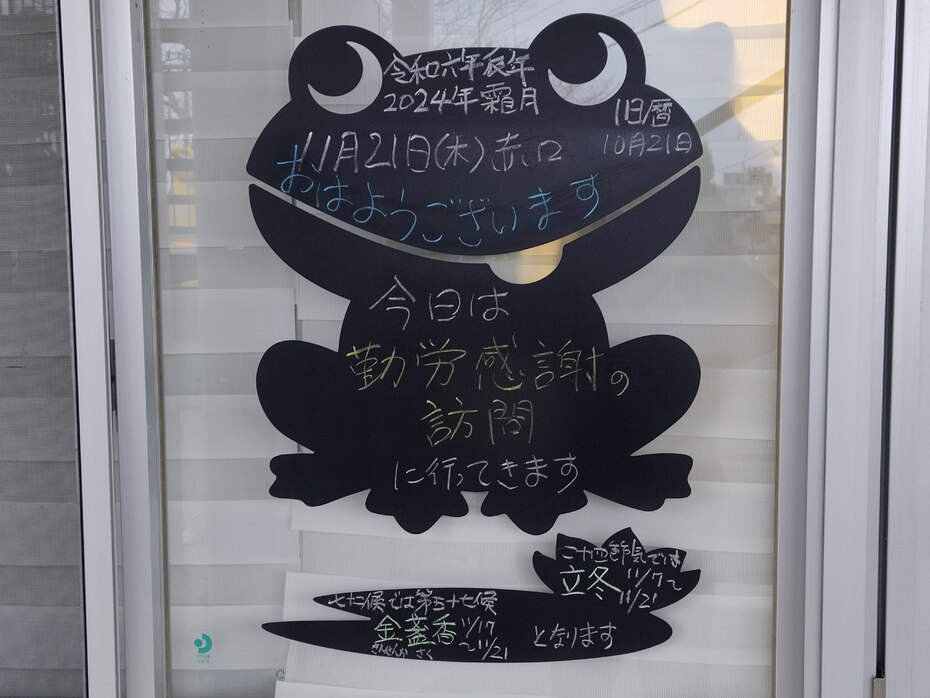 令和六年辰年
2024年霜月
旧暦
10月21日
11月21日(木)赤口
おはようございます
今日は
勤労感謝の
訪問
に行ってきます
二十四節気では
立冬 11/7〜
11/21
七十二候では第五十七候
金盞香 11/17
〜11/21
きんせんか さく
となります